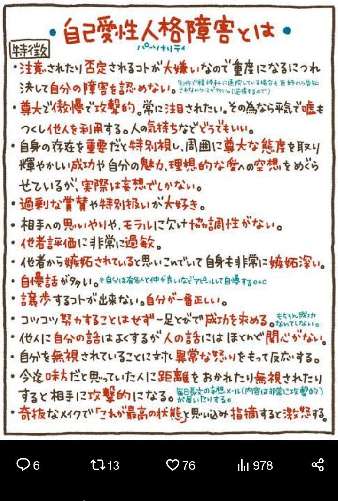 自己愛性人格障害とは
パーソナリティ
特徴
・注意されたり否定されるコトが大嫌いなので重症になるにつれ
決して自分の障害を認めない。
・尊大で傲慢で攻撃的。常に注目されたい。その為なら平気で嘘も
つくし他人を利用する。人の気持ちなどどうでもいい。
・自身の存在を重要だと特別視し、周囲に尊大な態度を取り
輝やかしい成功や自分の魅力、理想的な愛への空想をめぐら
せているが、実際は妄想でしかない。
・過剰な賞賛や特別扱いが大好き。
・相手への思いやりや、モラルに欠け協調性がない。
・他者評価に非常に過敏。
・他者から嫉妬されていると思いこんでいて自身も非常に嫉妬深い。
・自慢話が多い。
・譲歩するコトが出来ない。自分が一番正しい。
・コツコツ努力することはせず一足とびで成功を求める。
もちろん成功
なんてしない。
・他人に自分の話はよくするが人の話にはほとんど関心がない。
・自分を無視されていることに対し異常な怒りをもって反応する。
・今迄味方だと思っていた人に距離をおかれたり無視されたり
すると相手に攻撃的になる。
・奇抜なメイクで「これが最高の状態」と思い込み指摘すると激怒する。
6 13 76 978